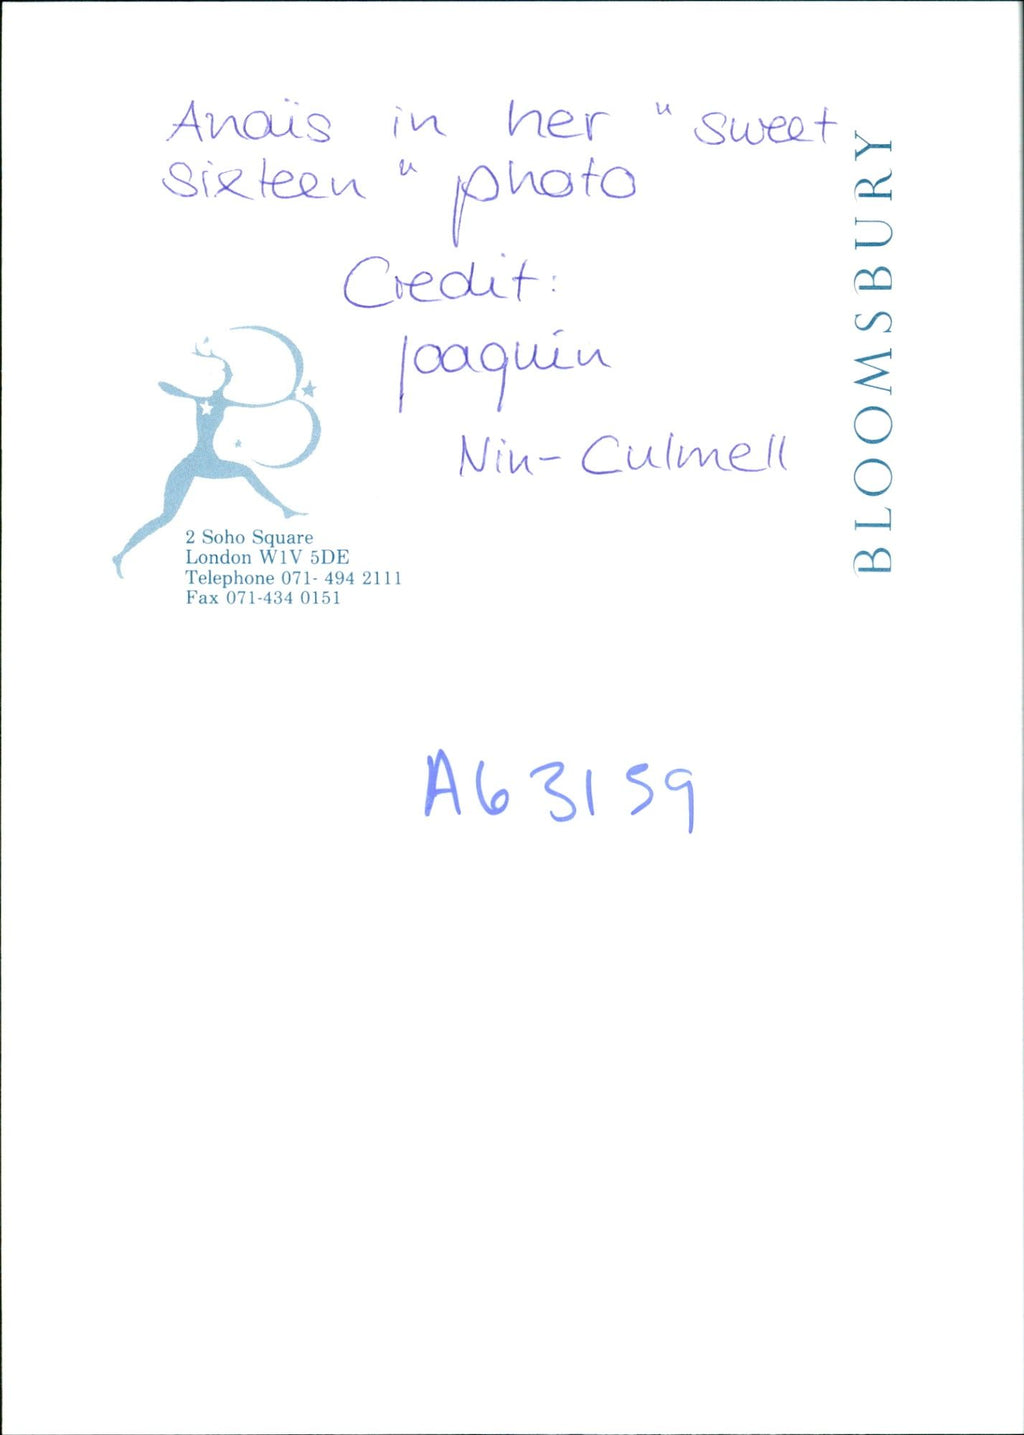 Anaïs in her " sweet
sixteen " photo
Credit:
Joaquin
Nin-Culmell
BLOOMSBURY
2 Soho Square
London W1V 5DE
Telephone 071- 494 2111
Fax 071-434 0151
A63159